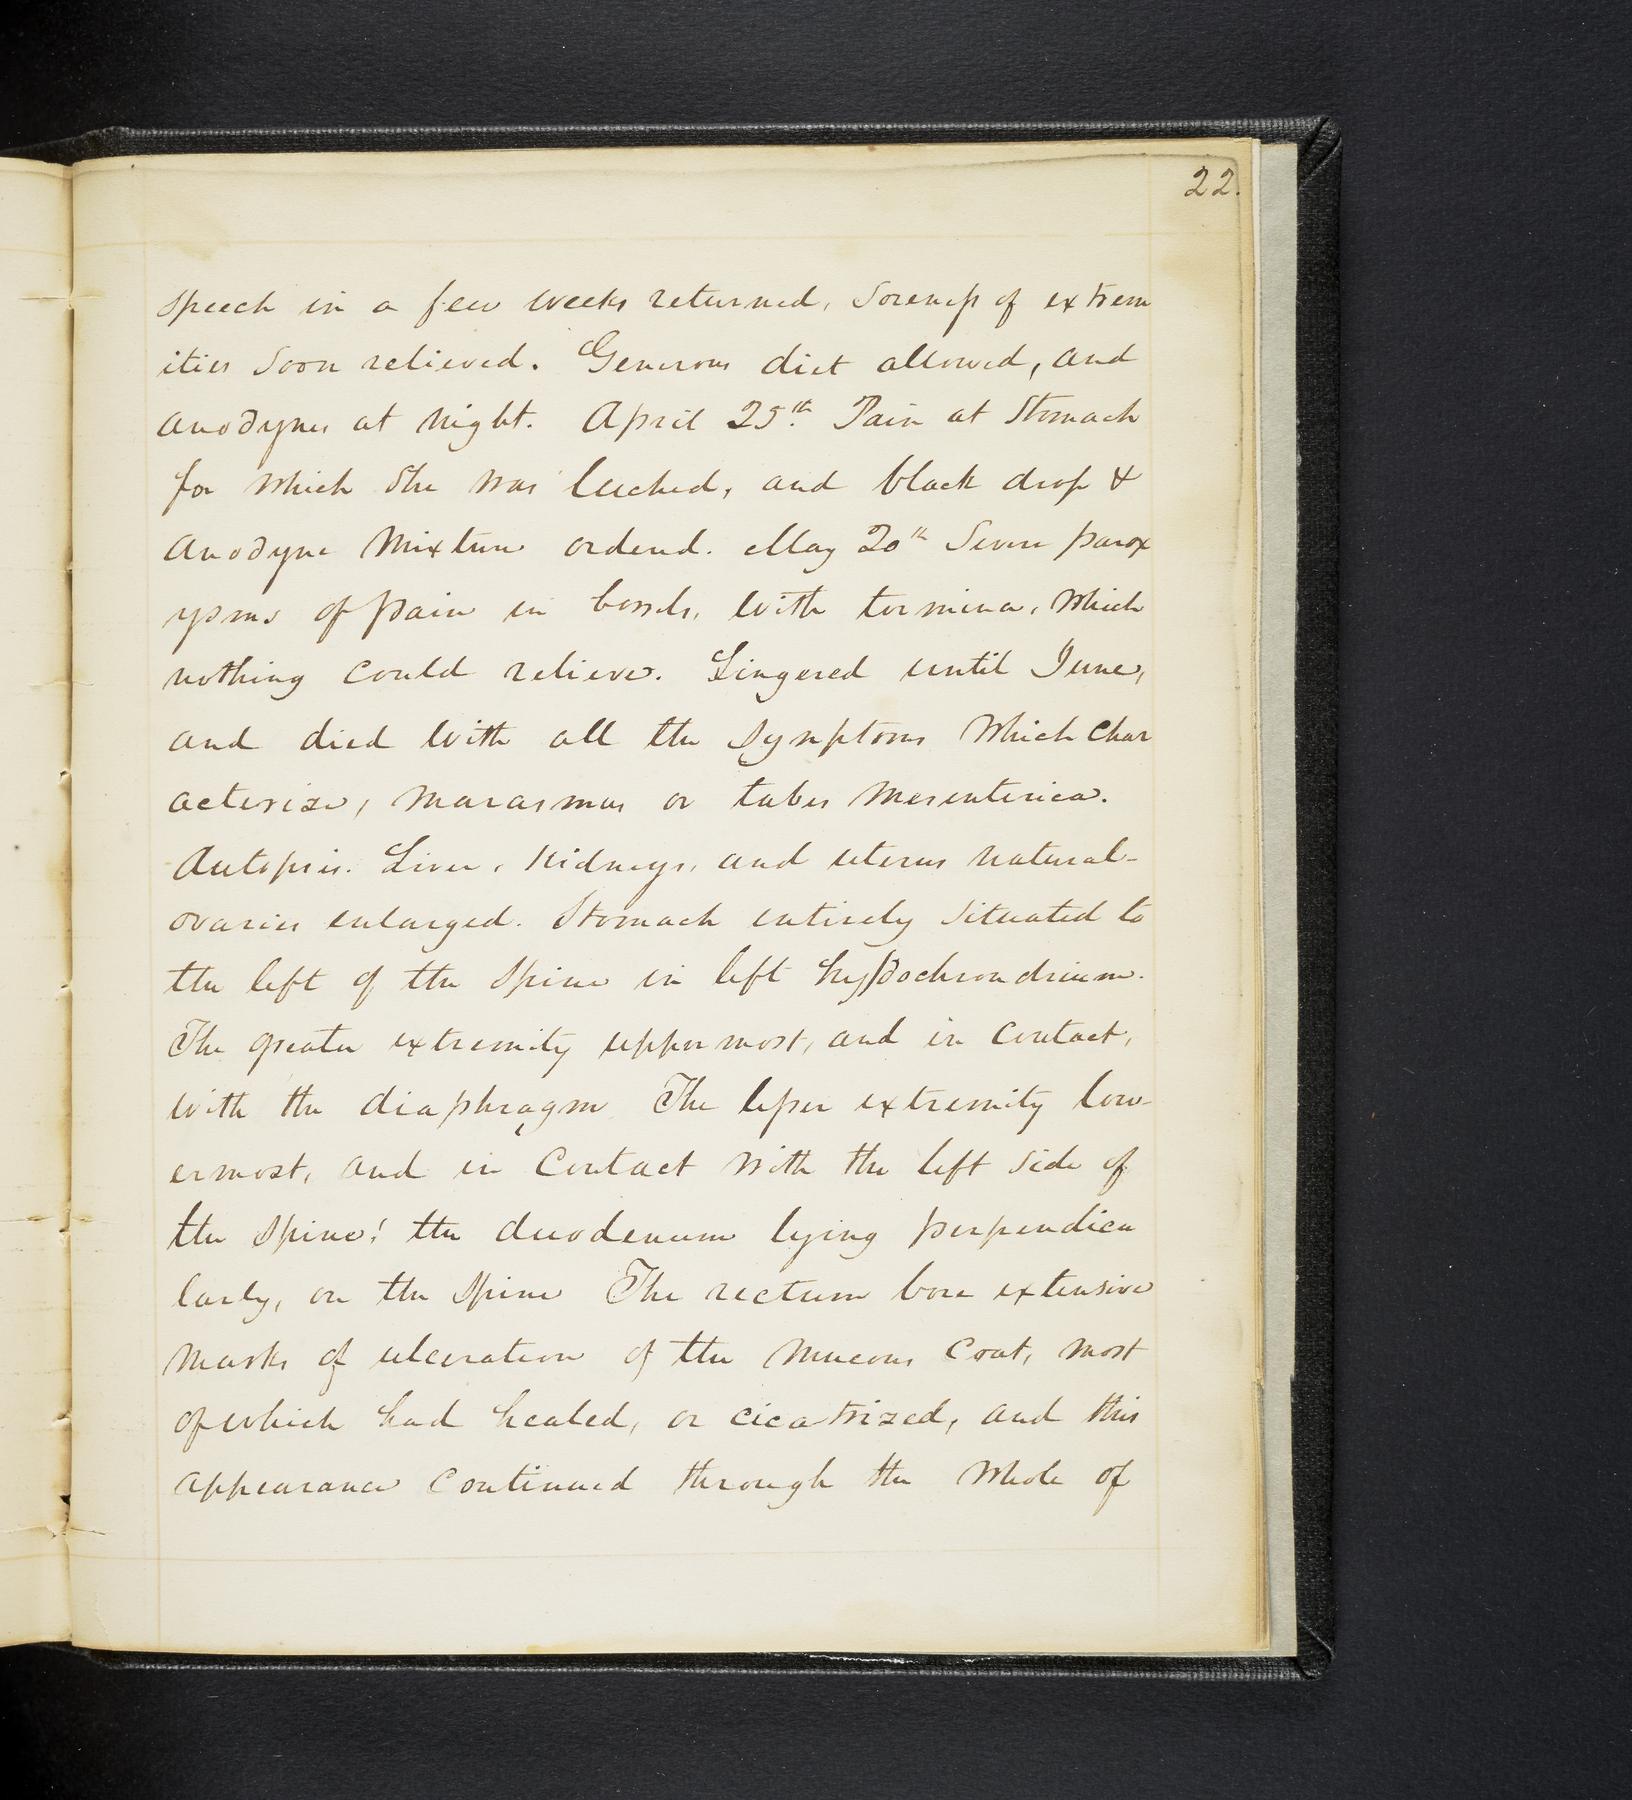 22.
speech in a few weeks returned, Soreness of extrem
ities soon relieved. Generous diet allowed, and
anodynes at night. April 25th. Pain at Stomach
for which She was leeched, and black drop &
anodyne Mixture ordered. May 20th Severe parox
ysms of pain in bowels, with tormina, Which
nothing could relieve. Lingered until June,
and died with all the Symptoms Which Char
acterize, Marasmus or tabes Mesenterica.
Autopsis. Liver, Kidneys, and uterus natural-
ovaries enlarged. Stomach entirely Situated to
the left of the Spine in left hypochrondrium.
The greater extremity uppermost, and in Contact,
with the diaphragm The lesser extremity low-
ermost, and in Contact With the left Side of
the Spine! the duodenum lying perpendicu
larly, on the Spine The rectum bore extensive
Marks of ulceration of the Mucous Coat, most
of which had healed, or cicatrized, and this
appearance Continued through the Whole of